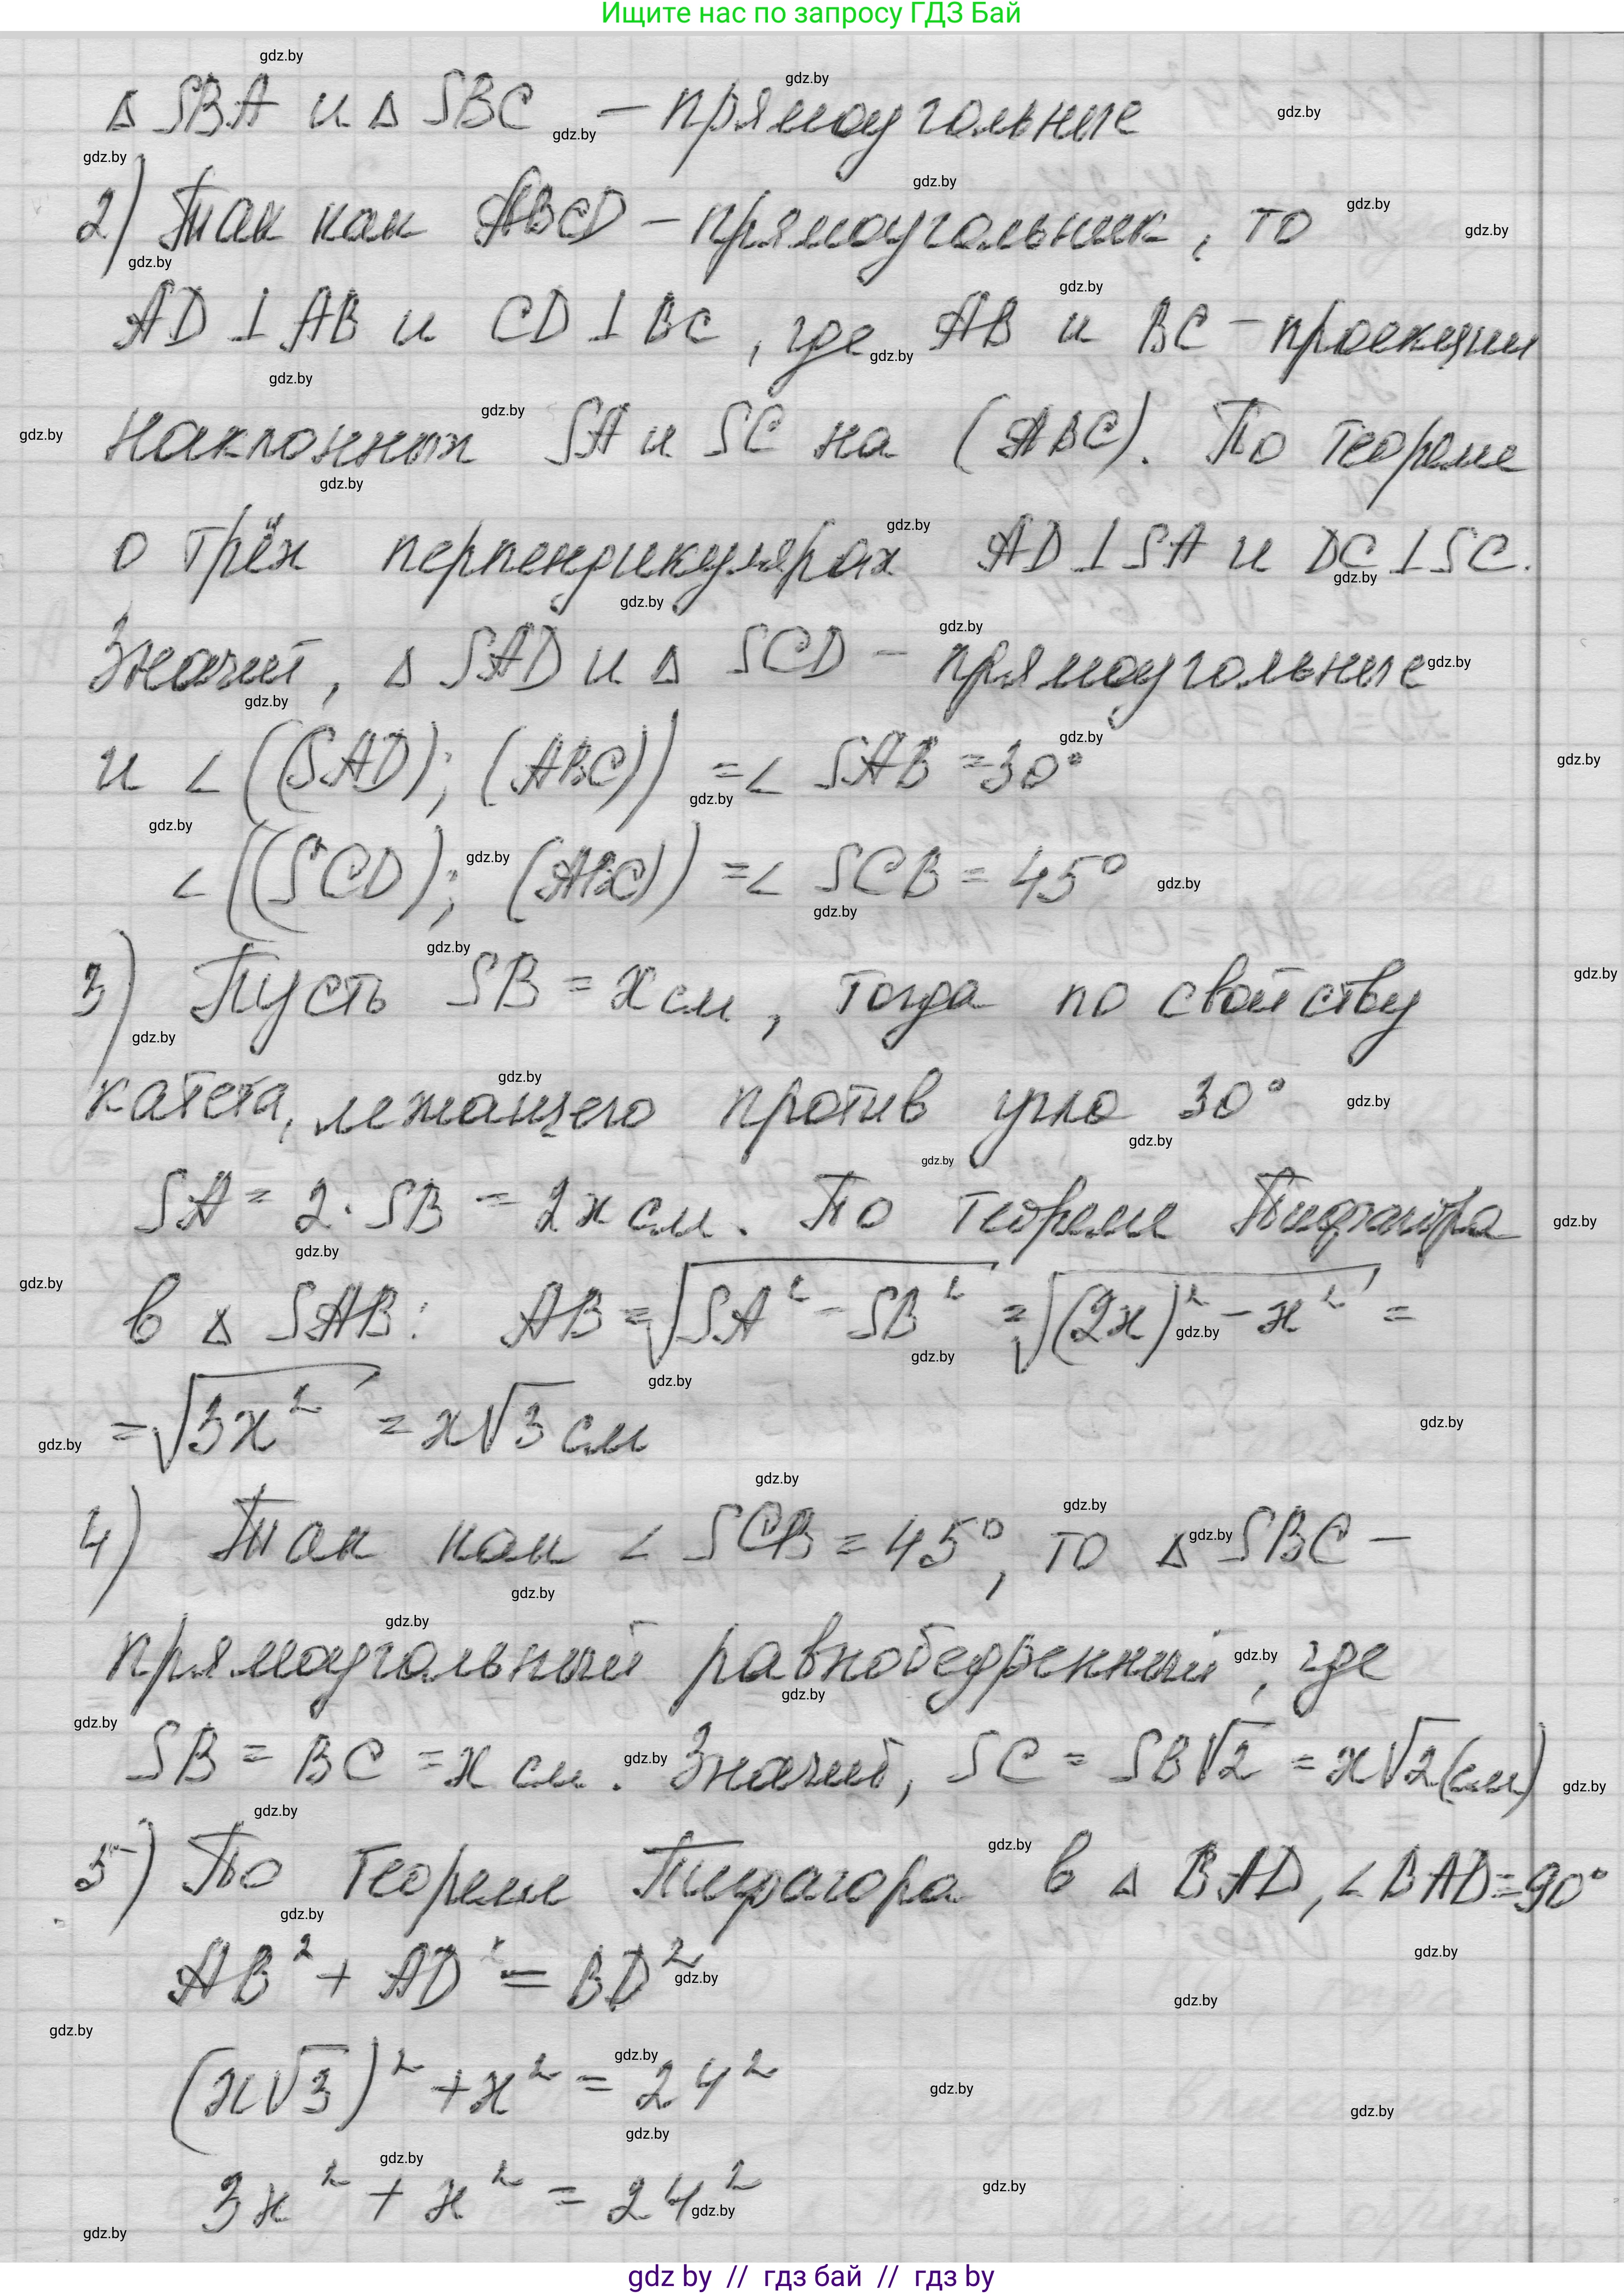 Ищите нас по запросу ГДЗ Бай
Δ SBA и Δ SBC – прямоугольные
2) Так как ABCD – прямоугольник, то
AD ⊥ AB и CD ⊥ BC, где AB и BC – проекции
наклонных SA и SC на (ABC). По теореме
о трёх перпендикулярах AD ⊥ SA и DC ⊥ SC.
Значит, Δ SAD и Δ SCD – прямоугольные
и ∠((SAD); (ABC)) = ∠ SAB = 30°
∠((SCD); (ABC)) = ∠ SCB = 45°
3) Пусть SB = x см, тогда по свойству
катета, лежащего против угла 30°
SA = 2·SB = 2x см. По теореме Пифагора
в Δ SAB: AB = √(SA² – SB²) = √((2x)² – x²) =
= √(3x²) = x√3 см
4) Так как ∠ SCB = 45°, то Δ SBC –
прямоугольный равнобедренный, где
SB = BC = x см. Значит, SC = SB√2 = x√2(см)
5) По теореме Пифагора в Δ BAD, ∠BAD=90°
AB² + AD² = BD²
(x√3)² + x² = 24²
3x² + x² = 24²
gdz by // гдз бай // гдз by